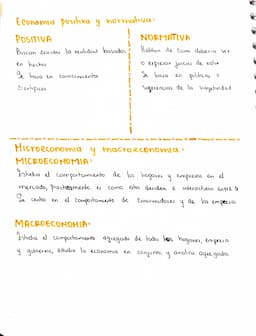 Economía positiva y normativa:
POSITIVA
Buscan describir la realidad basados
en hechos
Se basa en conocimientos
científicos
NORMATIVA
Hablan de como debería ser
o expresar juicios de valor
Se basa en políticas o
sugerencias de la
Microeconomía y macroeconomía:
MICROECONOMÍA:
Estudia el comportamiento de los hogares y empresas en el
mercado, como ellos deciden e interactúan entre sí
Se centra en el comportamiento de consumidores y de las empresas
MACROECONOMÍA:
Estudia el comportamiento agregado de todos los hogares, empresas
y gobierno, estudia la economía en conjunto y analiza agregados